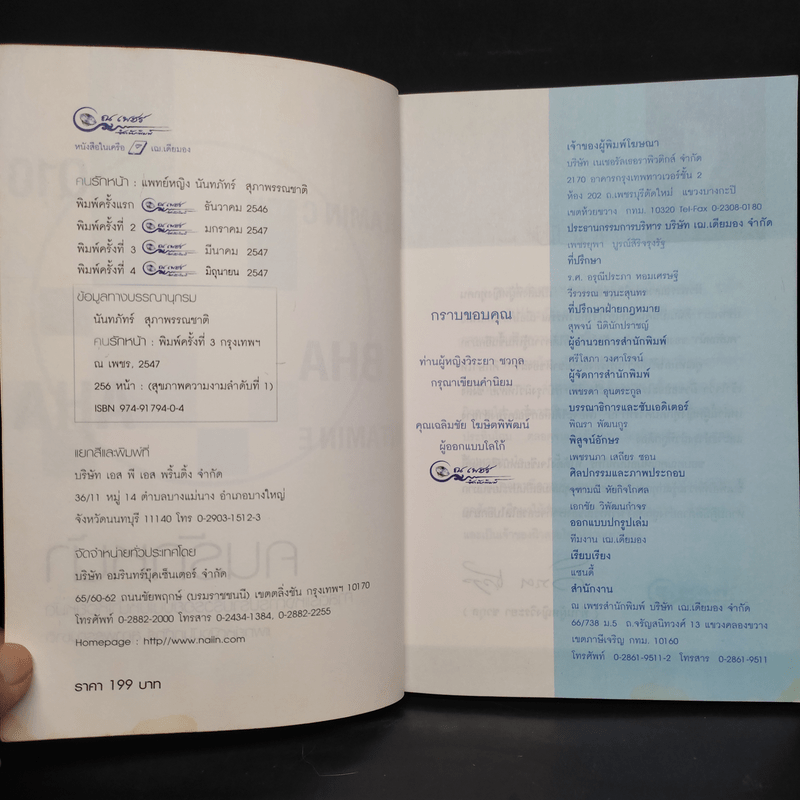 ณ เพชร
สำนักพิมพ์
หนังสือในเครือ เฌ.เดียมอง
คนรักหน้า : แพทย์หญิง นันทภัทร์ สุภาพรรณชาติ
พิมพ์ครั้งแรก ณ เพชร สำนักพิมพ์ ธันวาคม 2546
พิมพ์ครั้งที่ 2 ณ เพชร สำนักพิมพ์ มกราคม 2547
พิมพ์ครั้งที่ 3 ณ เพชร สำนักพิมพ์ มีนาคม 2547
พิมพ์ครั้งที่ 4 ณ เพชร สำนักพิมพ์ มิถุนายน 2547
ข้อมูลทางบรรณานุกรม
นันทภัทร์ สุภาพรรณชาติ
คนรักหน้า : พิมพ์ครั้งที่ 3 กรุงเทพฯ
ณ เพชร, 2547
256 หน้า : (สุขภาพความงามลำดับที่ 1)
ISBN 974-91794-0-4
แยกสีและพิมพ์ที่
บริษัท เอส พี เอส พริ้นติ้ง จำกัด
36/11 หมู่ 14 ตำบลบางแม่นาง อำเภอบางใหญ่
จังหวัดนนทบุรี 11140 โทร 0-2903-1512-3
จัดจำหน่ายทั่วประเทศโดย
บริษัท อมรินทร์บุ๊คเซ็นเตอร์ จำกัด
65/60-62 ถนนชัยพฤกษ์ (บรมราชชนนี) เขตตลิ่งชัน กรุงเทพฯ 10170
โทรศัพท์ 0-2882-2000 โทรสาร 0-2434-1384, 0-2882-2255
Homepage : http//www.naiin.com
ราคา 199 บาท
กราบขอบคุณ
ท่านผู้หญิงวิระยา ชวกุล
กรุณาเขียนคำนิยม
คุณเฉลิมชัย โฆษิตพิพัฒน์
ผู้ออกแบบโลโก้
ณ เพชร
สำนักพิมพ์
เจ้าของผู้พิมพ์โฆษณา
บริษัท เนเชอรัลเธอราพิวติกส์ จำกัด
2170 อาคารกรุงเทพทาวเวอร์ชั้น 2
ห้อง 202 ถ.เพชรบุรีตัดใหม่ แขวงบางกะปิ
เขตห้วยขวาง กทม. 10320 Tel-Fax 0-2308-0180
ประธานกรรมการบริหาร บริษัท เฌ.เดียมอง จำกัด
เพชรยุพา บูรณ์สิริจรุงรัฐ
ที่ปรึกษา
ร.ศ. อรุณีประภา หอมเศรษฐี
วีรวรรณ ชวนะสุนทร
ที่ปรึกษาฝ่ายกฎหมาย
สุพจน์ นิตินักปราชญ์
ผู้อำนวยการสำนักพิมพ์
ศรีโสภา วงศาโรจน์
ผู้จัดการสำนักพิมพ์
เพชรดา อุนตระกูล
บรรณาธิการและซับเอดิเตอร์
พิณรา พัฒนกูร
พิสูจน์อักษร
เพชรนภา เสถียร ซอน
ศิลปกรรมและภาพประกอบ
จุฑามณี ทัยกิจโกศล
เอกชัย วิพัฒนกำจร
ออกแบบปกรูปเล่ม
ทีมงาน เฌ.เดียมอง
เรียบเรียง
แซนดี้
สำนักงาน
ณ เพชรสำนักพิมพ์ บริษัท เฌ.เดียมอง จำกัด
66/738 ม.5 ถ.จรัญสนิทวงศ์ 13 แขวงคลองขวาง
เขตภาษีเจริญ กทม. 10160
โทรศัพท์ 0-2861-9511-2 โทรสาร 0-2861-9511